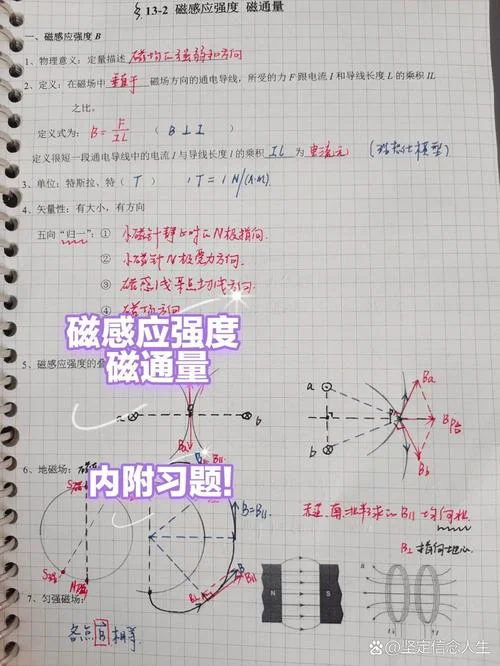 § 13-2 磁感应强度 磁通量
一、磁感应强度 B
1、物理意义：定量描述 磁场的强弱和方向
2、定义：在磁场中 垂直于 磁场方向的通电导线，所受的力 F 跟电流 I 和导线长度 L 的乘积 IL
之比。
定义式为：B=F/IL （ B⊥I ）
定义很短一段通电导线中的电流 I 与导线长度 l 的乘积 Il 为 电流元 (理想化模型)
3、单位：特斯拉、特（ T ） 1T=1N/(A·m)
4、矢量性：有大小，有方向
五向“归一”：① 小磁针静止时的N极指向.
② 小磁针N极受力方向.
③ 磁感线某点切线方向.
④ 磁场方向
磁感应强度
磁通量
5、磁感应强度的叠
a b
a b Ba B合 Bb
内附习题!
6、地磁场：
B=B∥
B⊥ 指向地心
N S
7、匀强磁场：
各点B相等
头条 @坚定信念人生